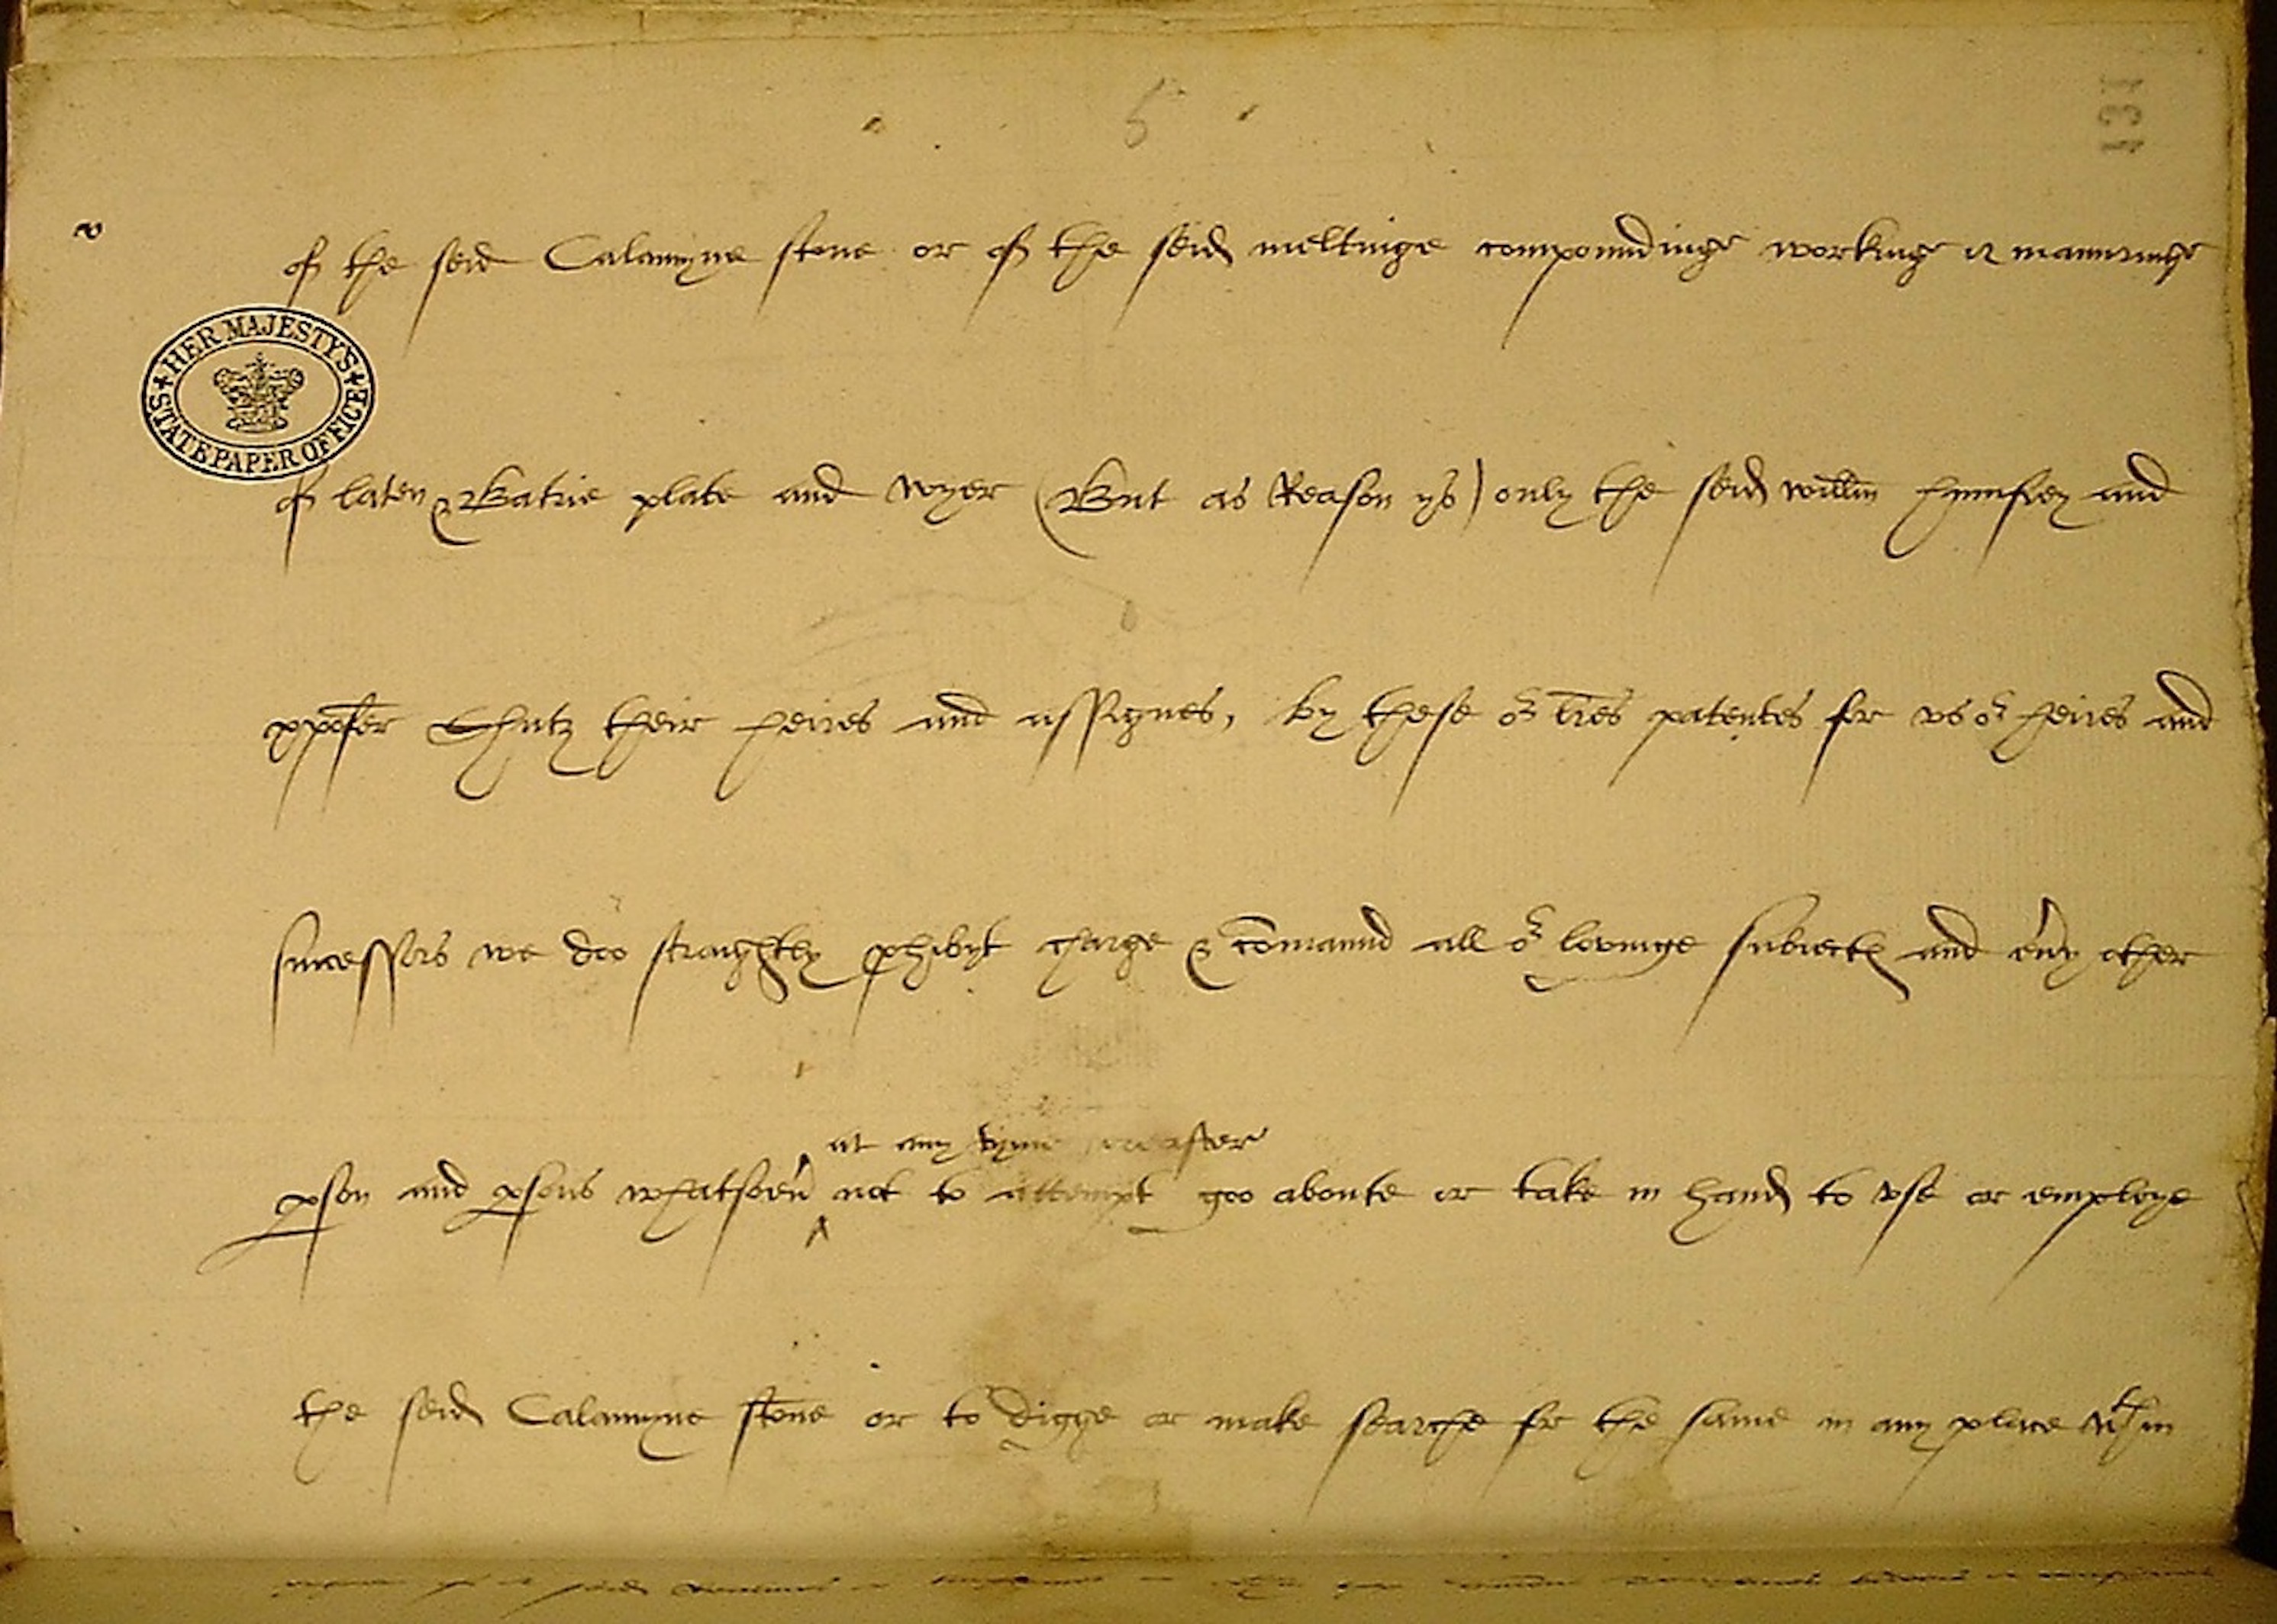 5
131
v
of the seid Calamyne stone or of the seid meltinge compoundinge workinge & manuringe
HER MAJESTY'S STATE PAPER OFFICE
of laten Batrie plate and wyer (But as Reason ys) only the seid willm Humfrey and
xpofer Shutz their heires and assignes, by these or lres patentes for vs or heires and
successors we doo straightly phibyt charge & comaund all or lovinge subiectes and eny other
pson and psons whatsoeu not to attempt goo aboute or take in hand to vse or employe
at any tyme hereafter
the seid Calamyne stone or to digge or make searche for the same in any place wthin